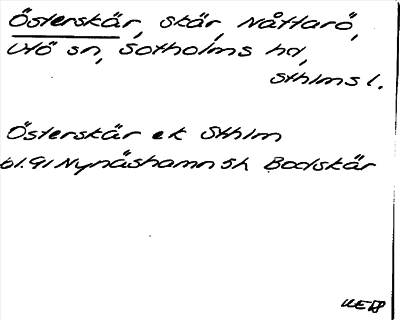 Österskär, skär, Nåttarö,
Utö sn, Sotholms hd,
Sthlms l.
Österskär ek Sthlm
bl. 91 Nynäshamn sh Bodskär